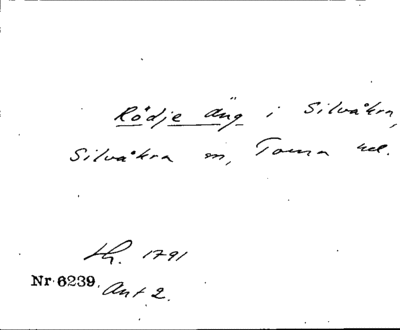 Rödje äng i Silvåkra,
Silvåkra sn, Torna hd.
Lh. 1791
Nr 6239.
Ant 2.